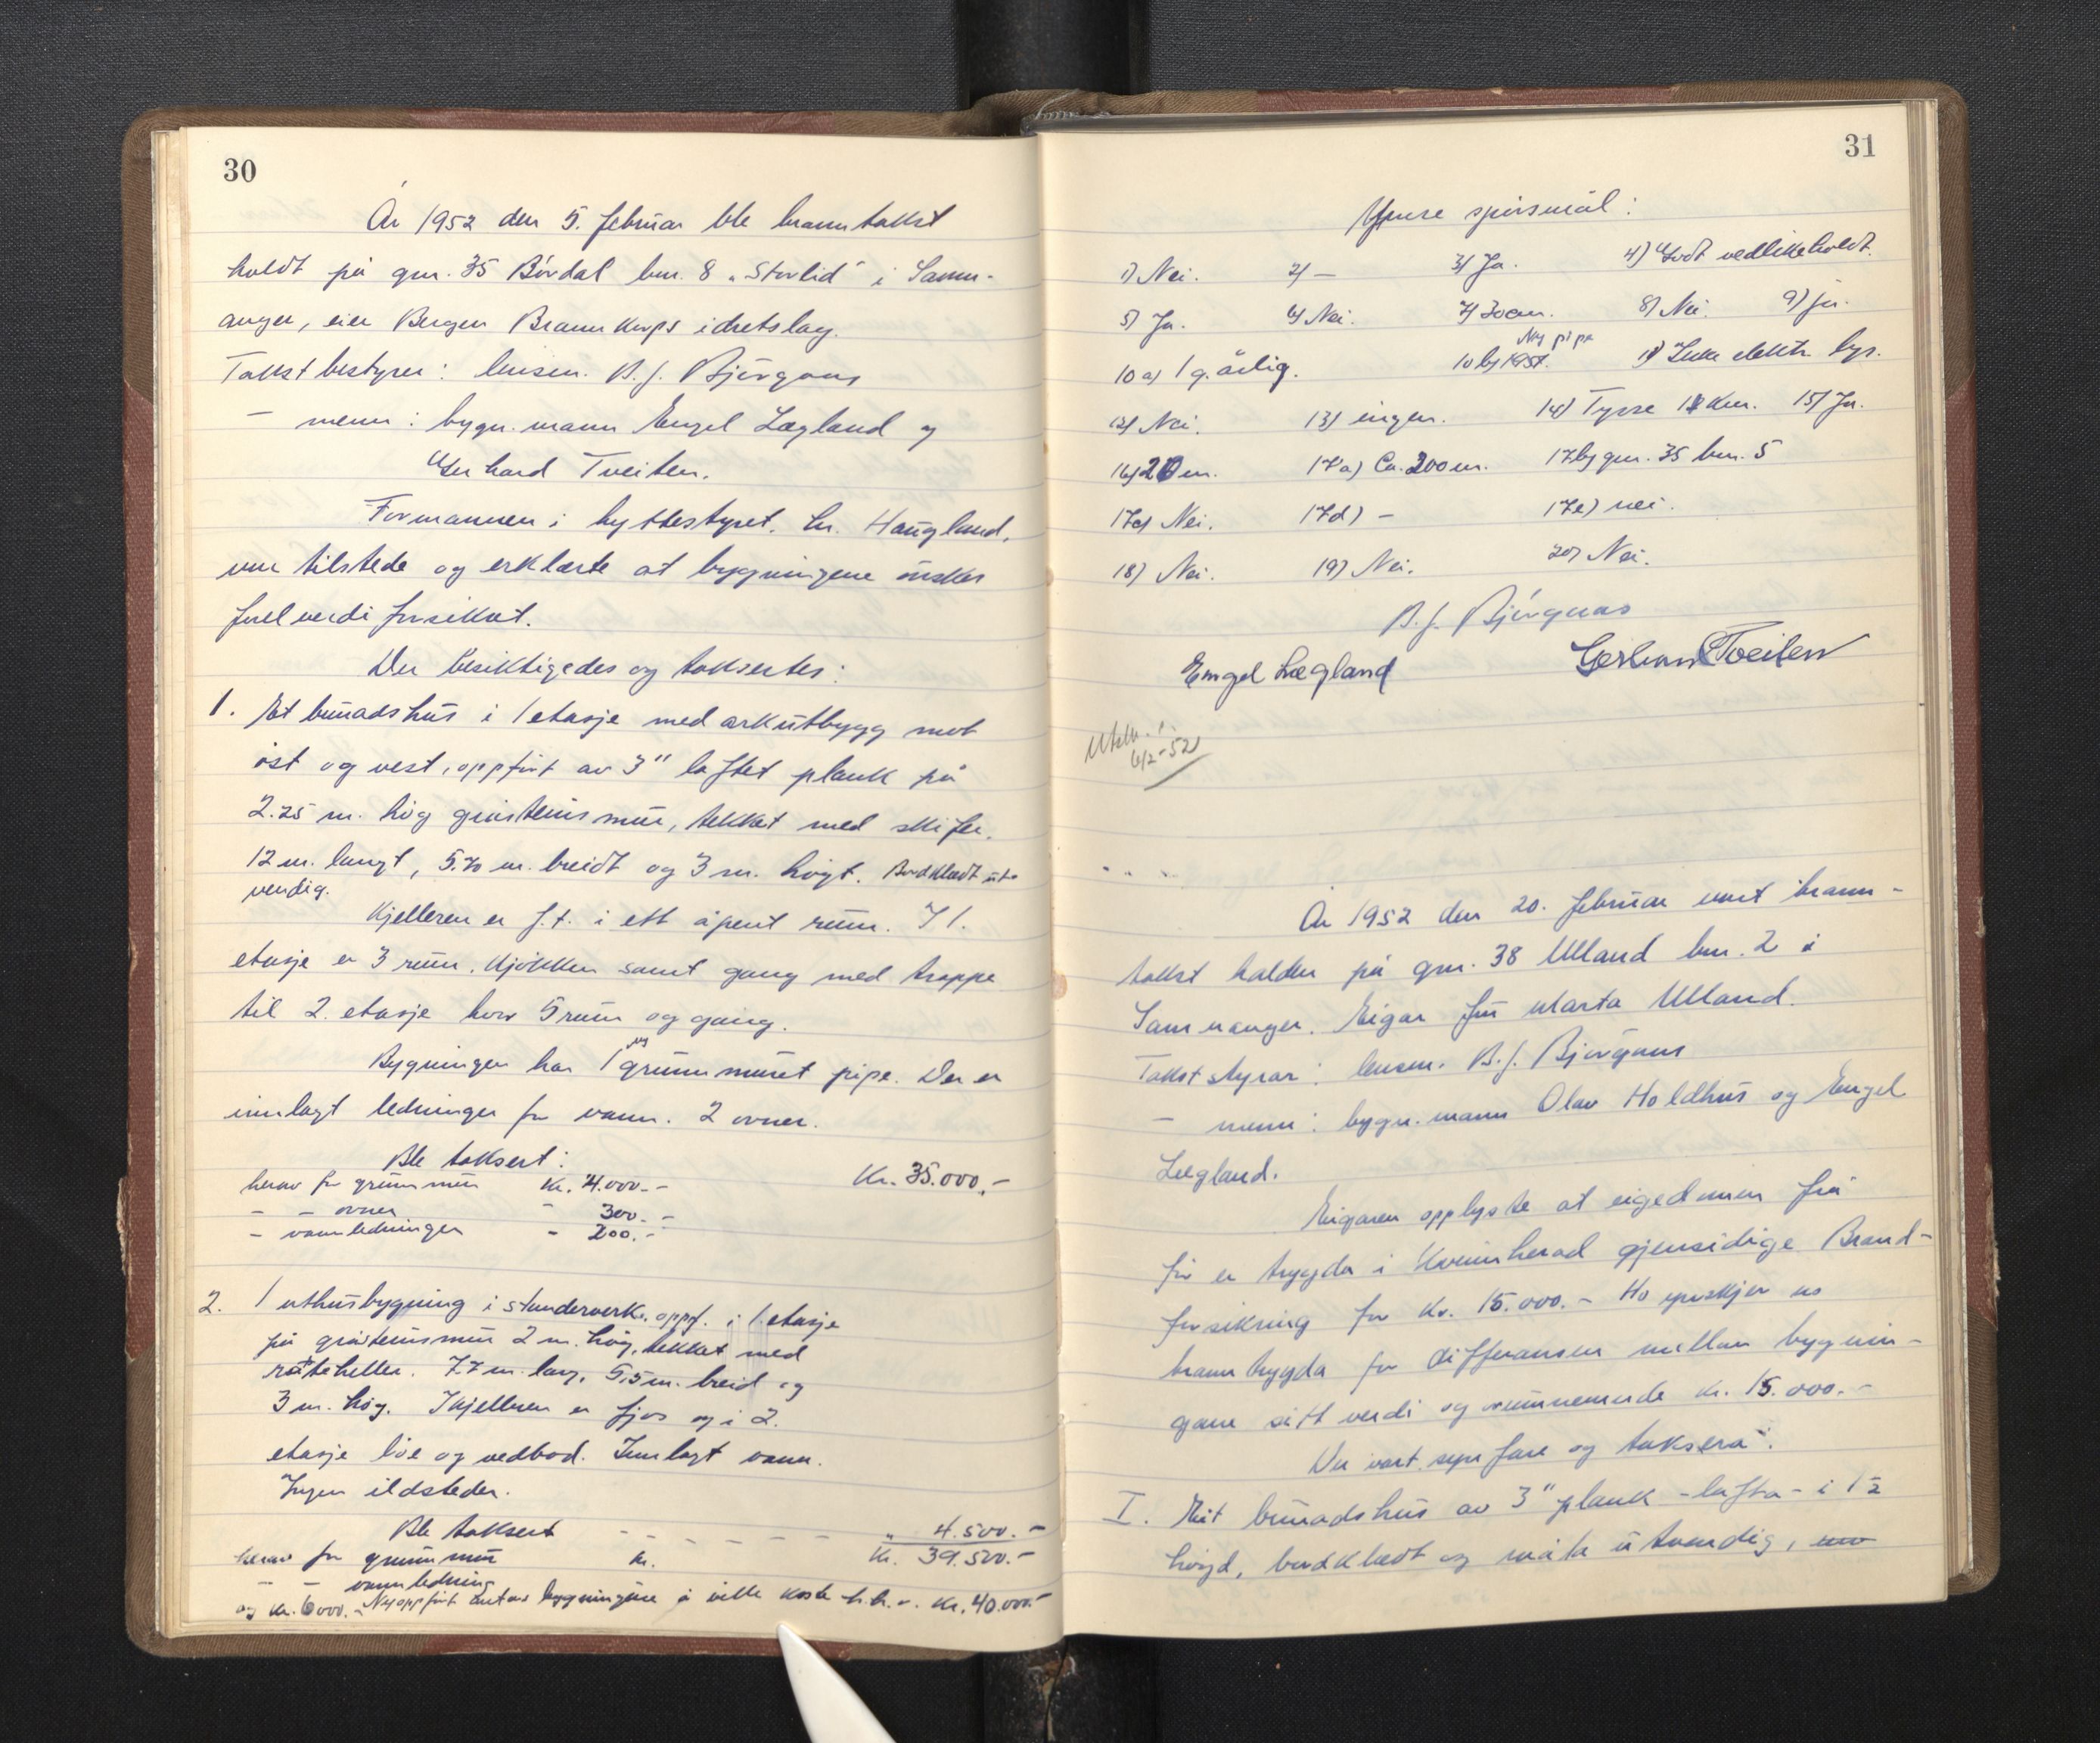 30
År 1952 den 5. februar ble branntakst
holdt på gnr. 35 Børdal bnr. 8 "Storlid" i Samn-
anger, eier Bergen Brannkorps idretslag.
Takstbestyrer: lensm. B. J. Bjørgaas
— menn: bygn. mann Engel Lægland og
Gerhard Tveiten.
Formannen i hyttestyret, hr. Haugland,
var tilstede og erklærte at bygningene ønskes
fullverdi forsikret.
Der besiktigedes og taksertes:
1. Et bunadshus i 1 etasje med arkutbygg mot
øst og vest, oppført av 3" laftet plank på
2.25 m. høg gråsteinsmur, tekket med skifer.
12 m. langt, 5.70 m. breidt og 3 m. høgt. Bordklædt ut-
vendig.
Kjelleren er f.t. i ett åpent rum. I 1.
etasje er 3 rum, kjøkken samt gang med trappe
til 2. etasje hvor 5 rum og gang.
Bygningen har 1 ny grunnmuret pipe. Der er
innlagt ledninger for vann. 2 ovner.
Ble taksert: Kr. 35.000,-
herav for grunnmur Kr. 4.000.-
— — ovner - 300.-
— vannledninger - 200.-
2. 1 uthusbygning i stenderverk, oppf. i 1. etasje
på gråsteinsmur 2 m. høg, tekket med
råteheller. 7.7 m. lang, 5,5 m. breid og
3 m. høg. I kjelleren er fjøs og i 2.
etasje løe og vedbod. Innlagt vann.
Ingen ildsteder.
Ble taksert - - - - - " 4.500.-
herav for grunnmur kr. Kr. 39.500.-
— — vannledning
og kr. 6000.- Nyoppført antas bygningene å ville koste h.h.v. kr. 40.000.-
31
Ymse spørsmål:
1) Nei. 2) — 3) Ja. 4) Godt vedlikeholdt.
5) Ja. 6) Nei. 7) 30 cm. 8) Nei. 9) ja.
10 a) 1 g. årlig. 10 b) 1951. Ny pipe 11) Ikke elektr. lys.
12) Nei. 13) ingen. 14) Tysse 11 km. 15) Ja.
16) 20 m. 17a) Ca. 200 m. 17b) gnr. 35 bnr. 5
17c) Nei. 17d) — 17e) nei.
18) Nei. 19) Nei. 20) Nei.
B. J. Bjørgaas
Engel Lægland Gerhard Tveiten
Utskr.
6/2-52
År 1952 den 20. februar vart brann-
takst halden på gnr. 38 Ulland bnr. 2 i
Samnanger. Eigar fru Marta Ulland.
Takststyrar: lensm. B. J. Bjørgaas
— menn: bygn. mann Olav Holdhus og Engel
Lægland.
Eigaren opplyste at eigedomen frå
før er trygda i Kvinnherad gjensidige Brand-
forsikring for kr. 15.000.- Ho ynskjer no
branntrygda for differansen mellom bygnin-
gane sitt verdi og ovannemnde kr. 15.000.-
Der vart synfare og taksera:
I. Eit bunadshus av 3" plank - lafta - i 1½
høgd, bordklædt og måla utvendig,